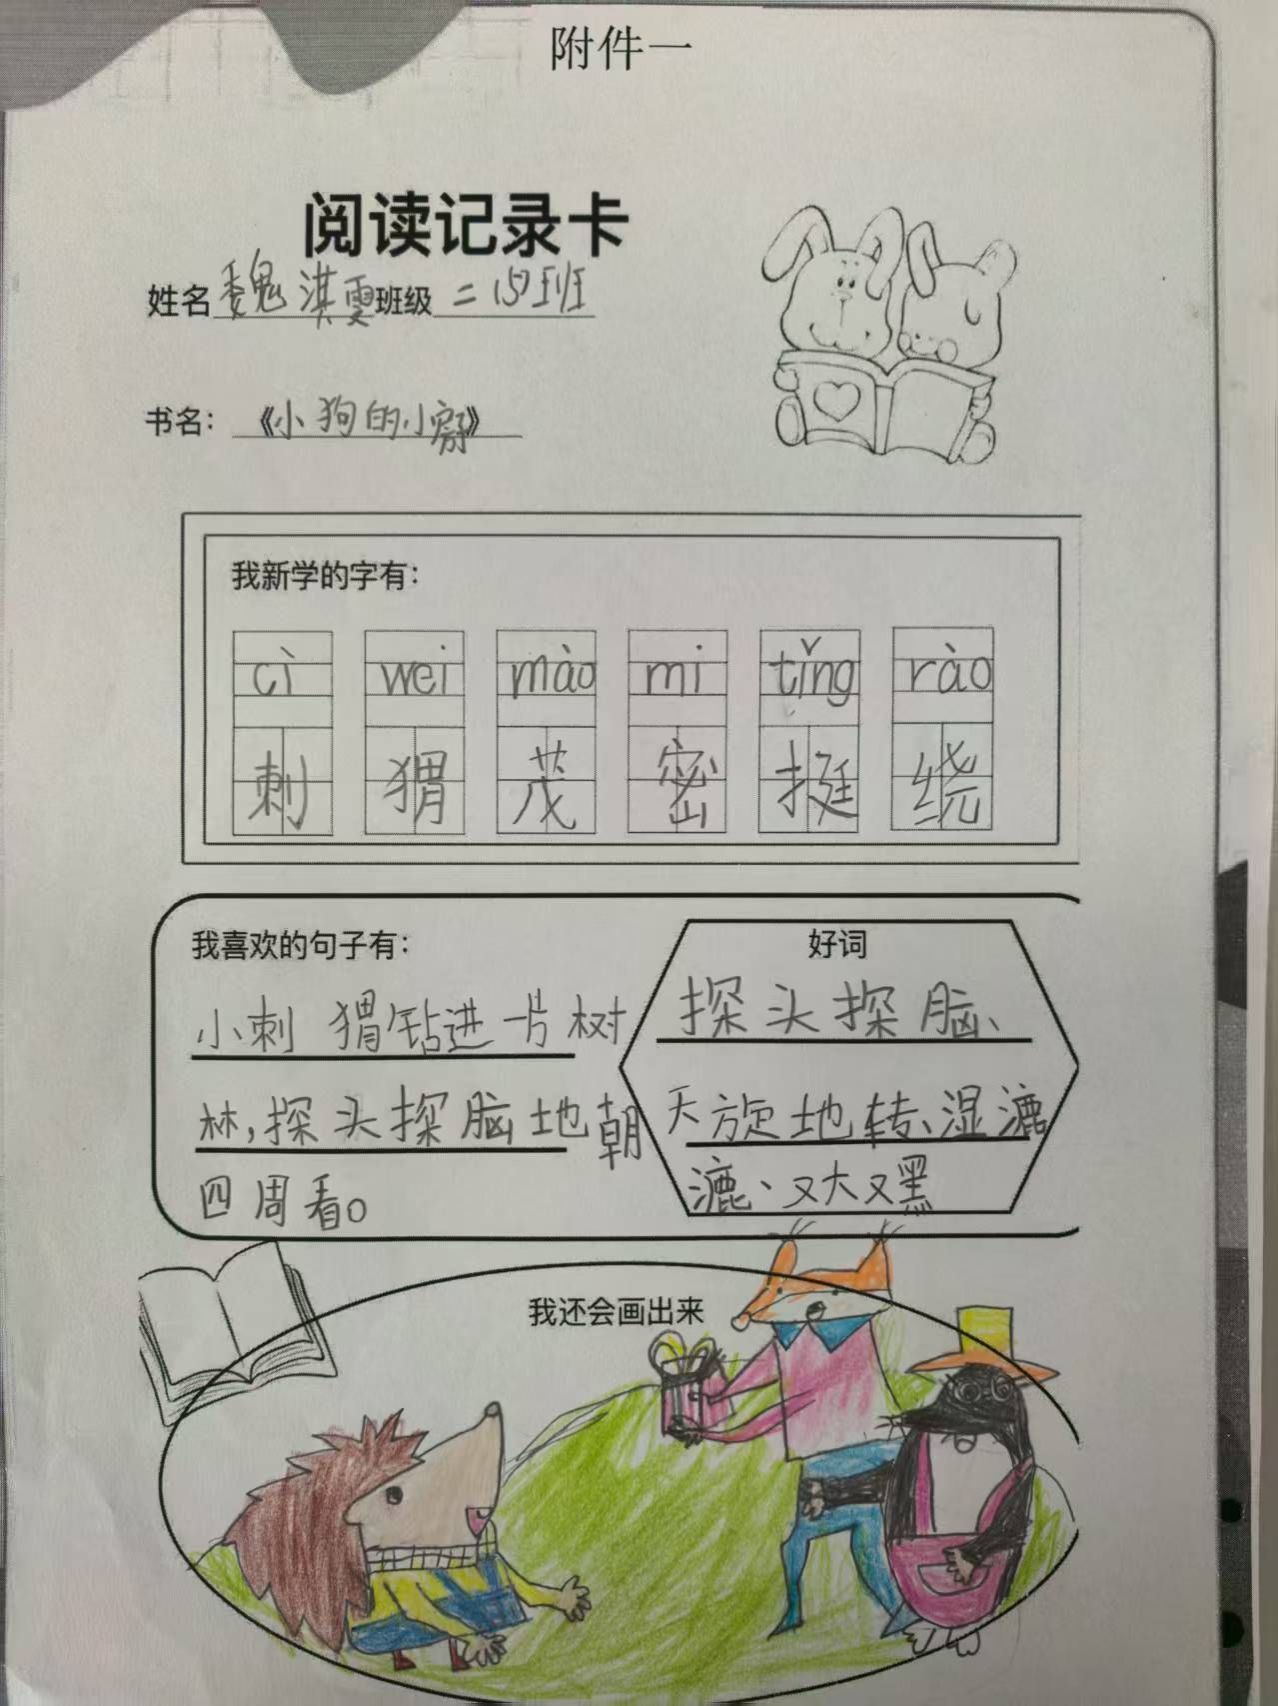 附件一
阅读记录卡
姓名魏淇雯班级二(5)班
书名：《小狗的小窝》
我新学的字有：
cì wei mào mi tǐng rào
刺 猬 茂 密 挺 绕
我喜欢的句子有：
小刺猬钻进一片树
林,探头探脑地朝
四周看。
好词
探头探脑、
天旋地转、湿漉
漉、又大又黑
我还会画出来